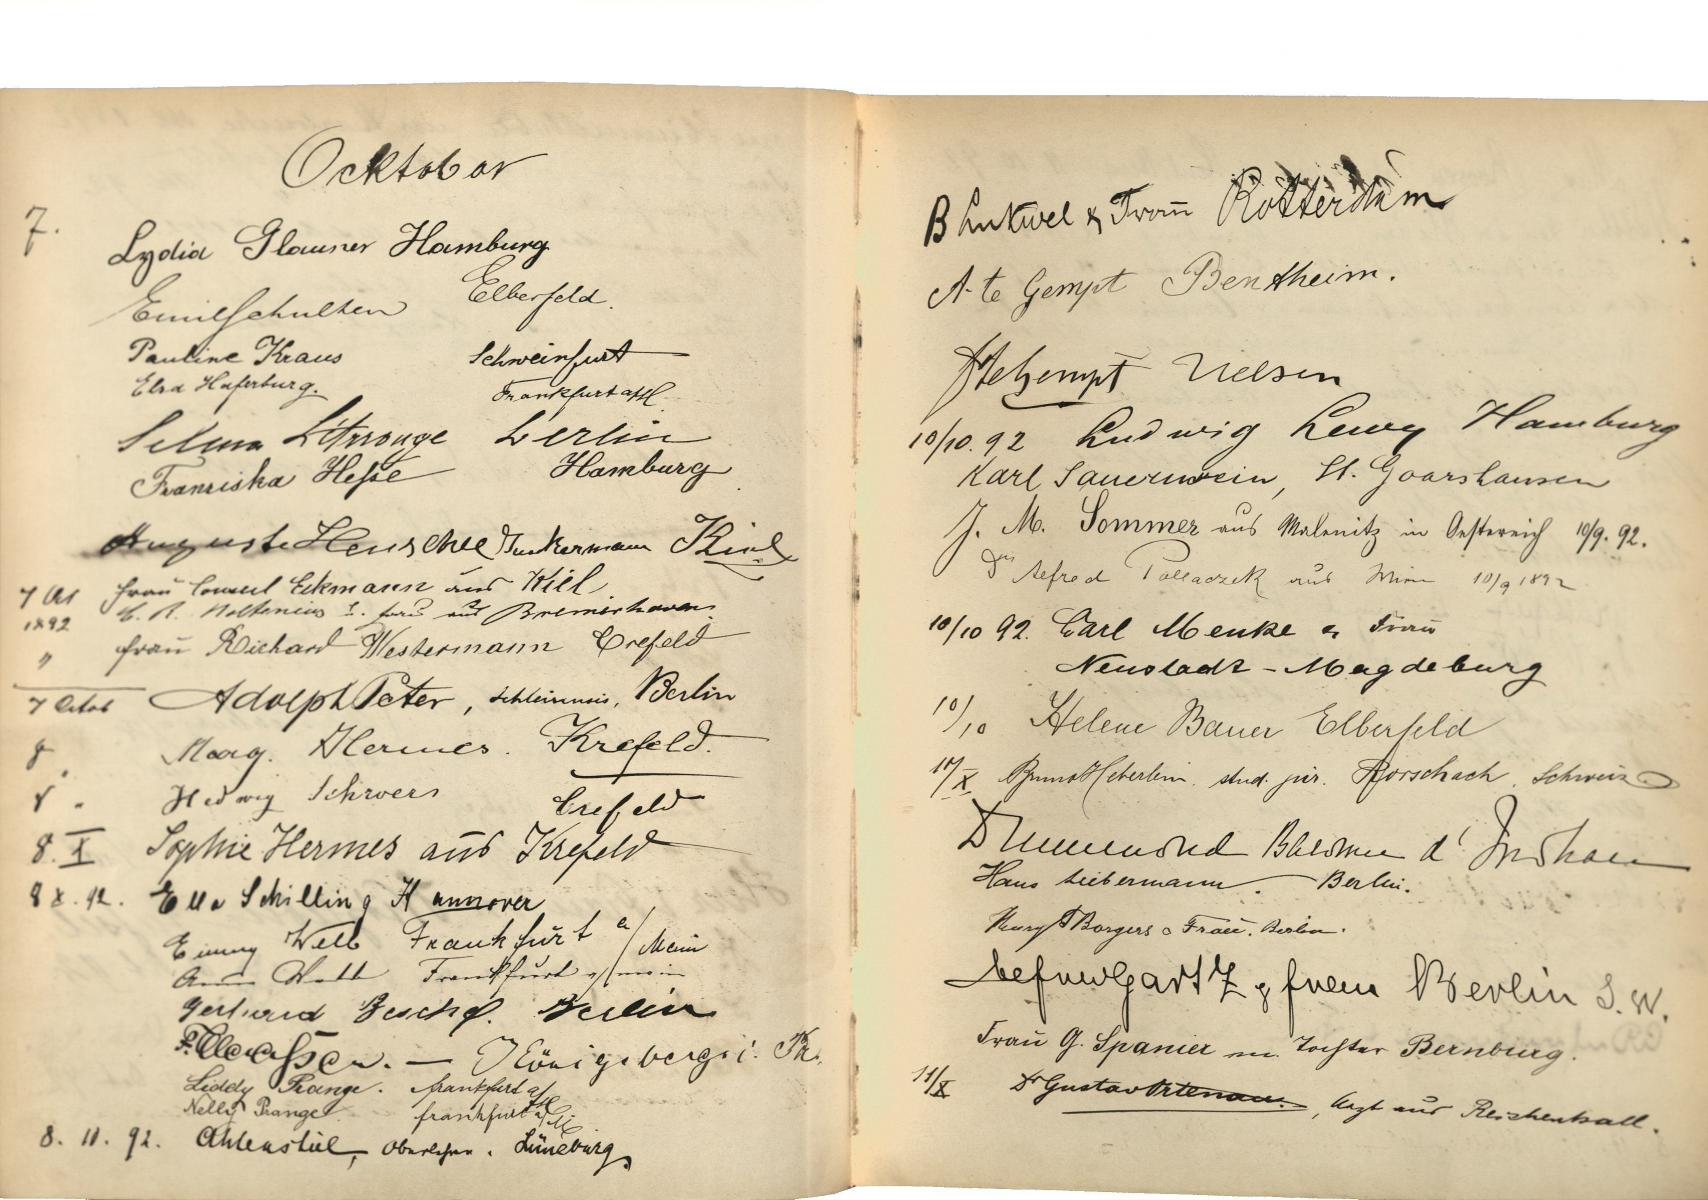 Ocktober
7.
Lydia Glauner Hamburg
Emil Schulten Elberfeld.
Pauline Kraus Schweinfurt
Elsa Haferburg. Frankfurt a/M.
Selma Berlin
Franziska Hesse Hamburg
Auguste Henschel Tuckermann Kiel
7 Oct Frau Consul Eckmann aus Kiel
1892 Noltenius aus Bremerhaven
" Frau Richard Westermann Crefeld
7 Octob Adolph Peter, Berlin
8 Marg. Hermes. Krefeld.
8 " Hedwig Schroers Crefeld
8. X Sophie Hermes aus Krefeld
8 X. 92. Ella Schilling Hannover
Emmy Welb Frankfurt a/Main
Frankfurt a/main
Gertrud Berlin
F. Claassen. — Königsberg i. Pr.
Liddy Prange. frankfurt a/M
Nelly Prange frankfurt a/M
8. 11. 92. Ahlenstiel, Lüneburg
B & Frau Rotterdam
A. te Gempt Bentheim.
te Gempt Uelsen
10/10. 92 Ludwig Levy Hamburg
Karl Sauerwein, St. Goarshausen
J. M. Sommer aus in Oesterreich 10/9. 92.
Alfred Pollaczek aus Wien 10/9 1892
10/10 92. Carl Menke & Frau
Neustadt - Magdeburg
10/10 Helene Bauer Elberfeld
10/X Bruno Heberlein stud. jur. Rorschach. Schweiz
Drummond
Hans Liebermann. Berlin.
Borgers & Frau. Berlin.
& frau Berlin S. W.
Frau G. Spanier m. Tochter Bernburg.
11/X Dr Gustav Ortenau, Arzt aus Reichenhall.